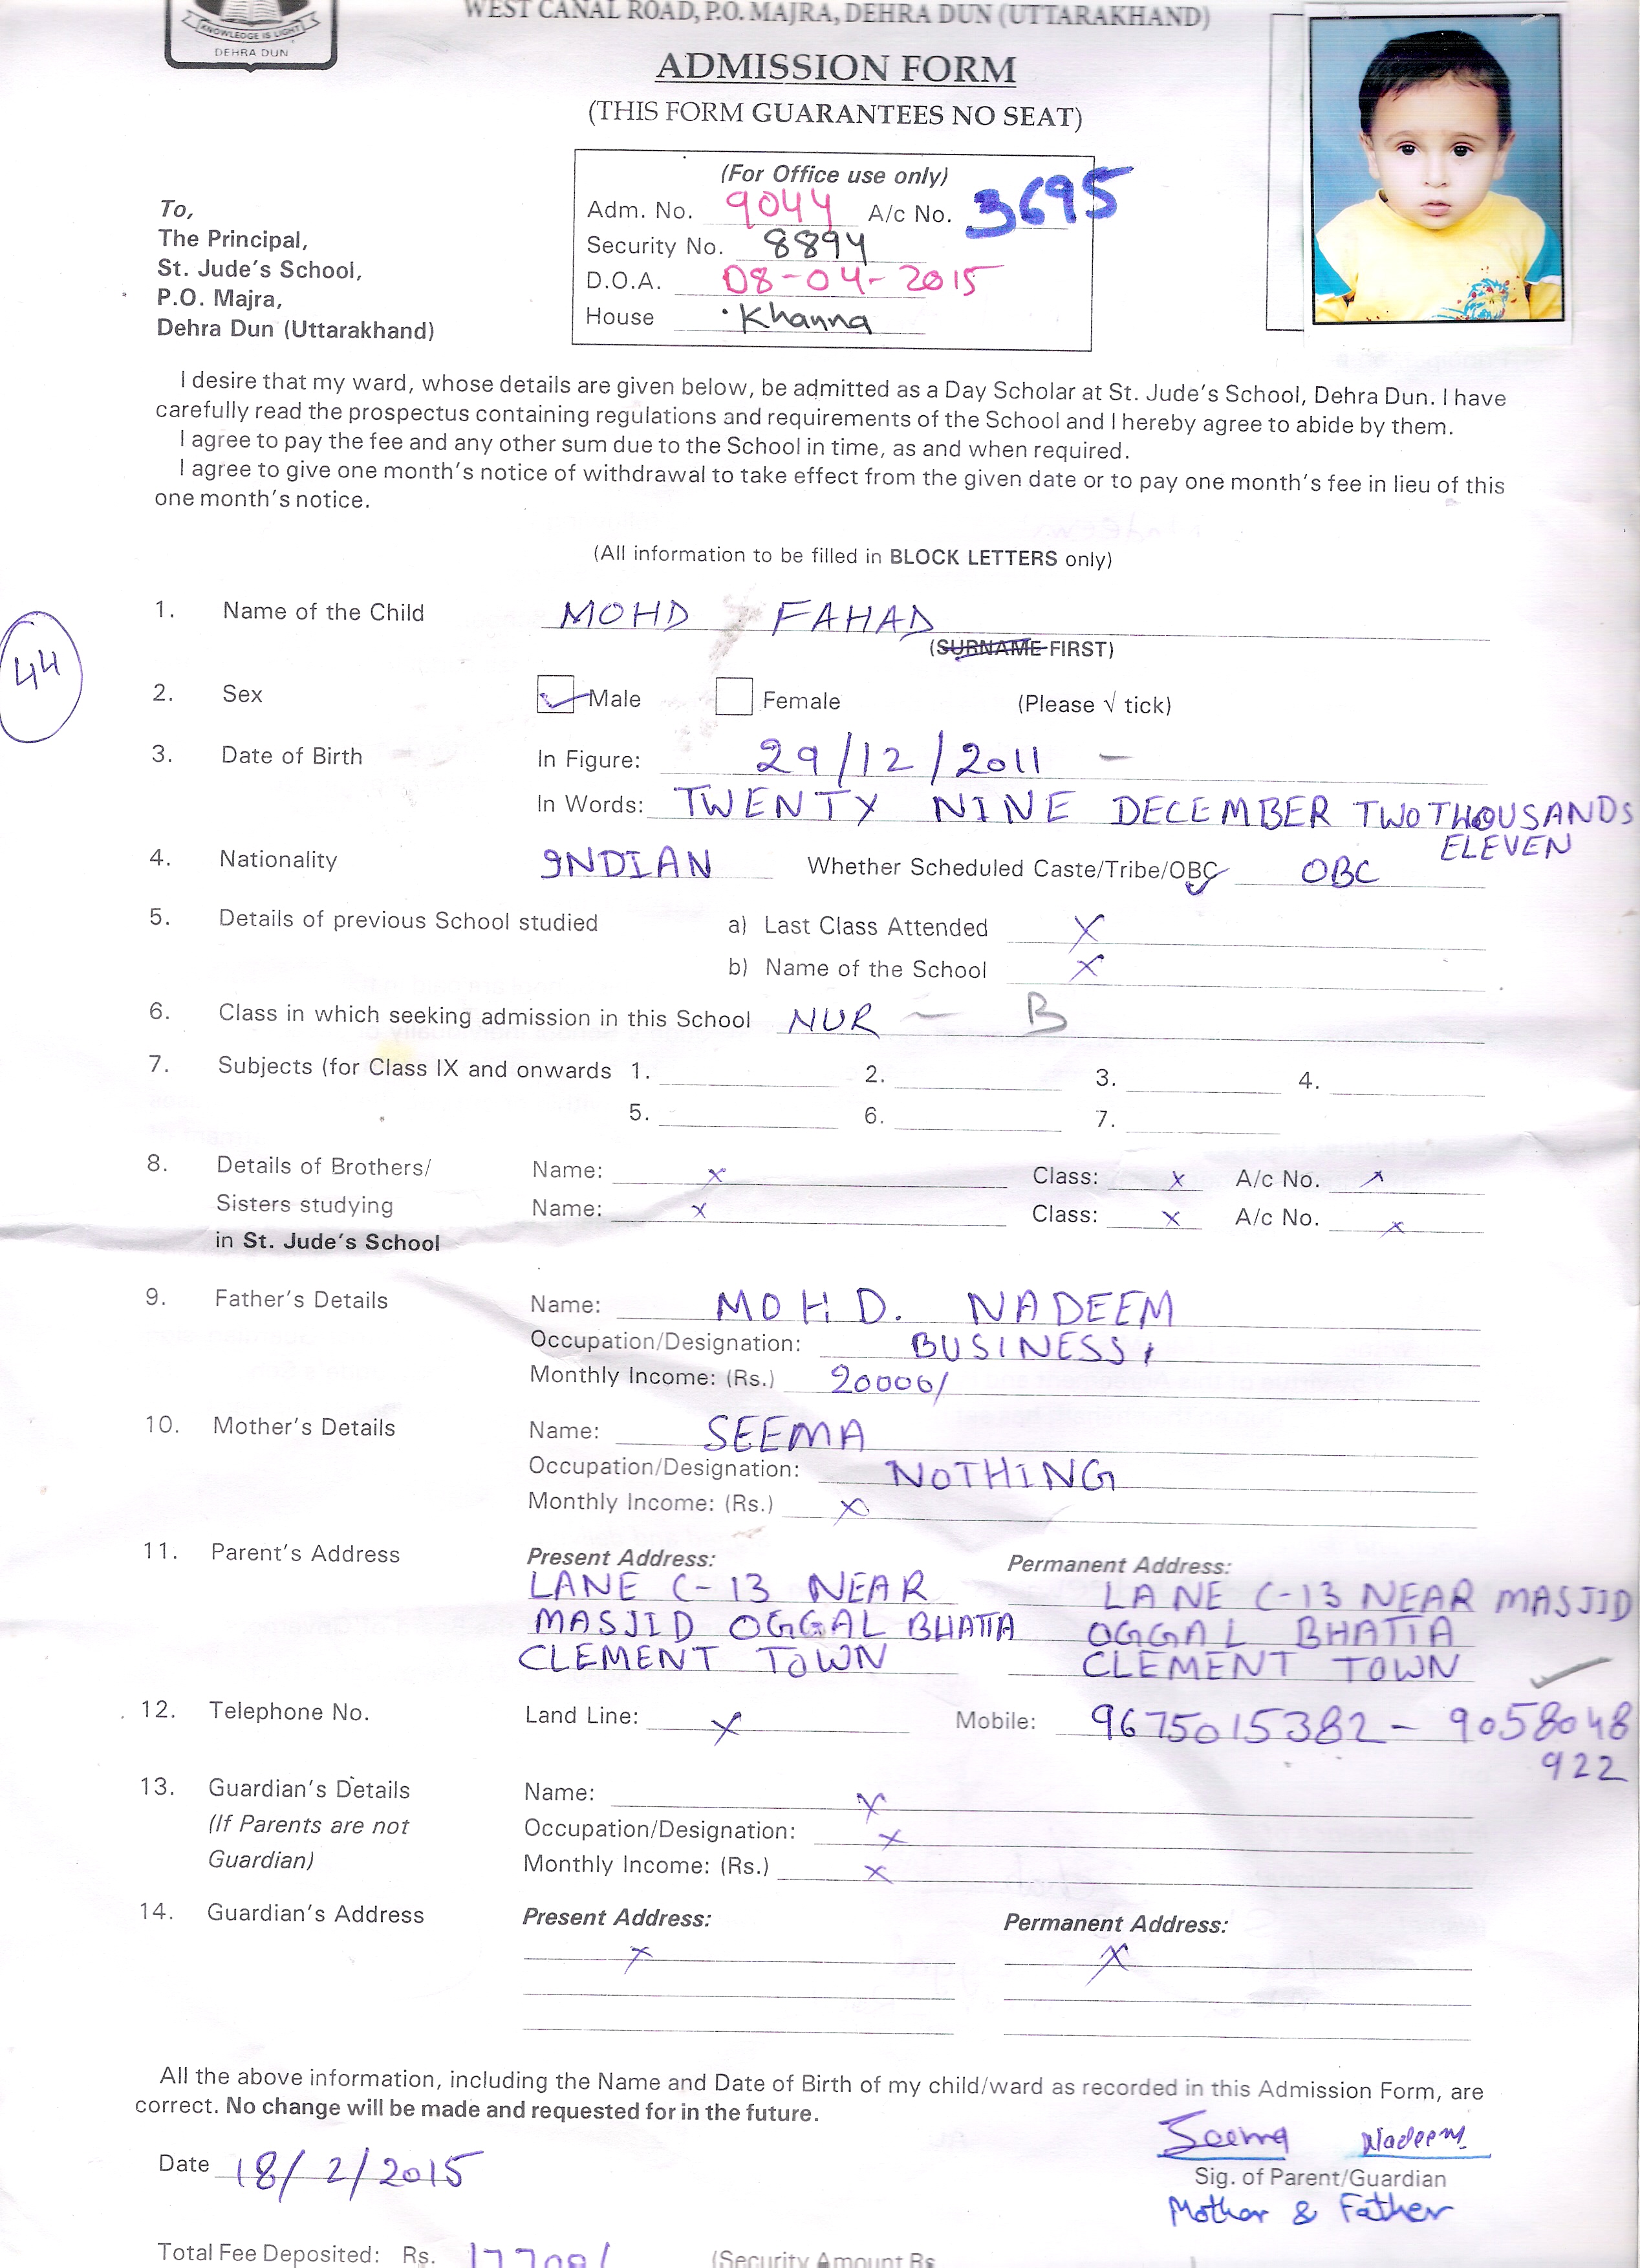 WEST CANAL ROAD, P.O. MAJRA, DEHRA DUN (UTTARAKHAND)
KNOWLEDGE IS LIGHT
DEHRA DUN
ADMISSION FORM
(THIS FORM GUARANTEES NO SEAT)
(For Office use only)
Adm. No. 9044 A/c No. 3695
Security No. 8894
D.O.A. 08-04-2015
House Khanna
To,
The Principal,
St. Jude's School,
P.O. Majra,
Dehra Dun (Uttarakhand)
I desire that my ward, whose details are given below, be admitted as a Day Scholar at St. Jude's School, Dehra Dun. I have
carefully read the prospectus containing regulations and requirements of the School and I hereby agree to abide by them.
I agree to pay the fee and any other sum due to the School in time, as and when required.
I agree to give one month's notice of withdrawal to take effect from the given date or to pay one month's fee in lieu of this
one month's notice.
(All information to be filled in BLOCK LETTERS only)
1. Name of the Child MOHD FAHAD
(SURNAME FIRST)
44
2. Sex Male Female (Please √ tick)
3. Date of Birth In Figure: 29/12/2011 -
In Words: TWENTY NINE DECEMBER TWO THOUSANDS
ELEVEN
4. Nationality INDIAN Whether Scheduled Caste/Tribe/OBC OBC
5. Details of previous School studied a) Last Class Attended X
b) Name of the School X
6. Class in which seeking admission in this School NUR - B
7. Subjects (for Class IX and onwards 1. 2. 3. 4.
5. 6. 7.
8. Details of Brothers/ Name: X Class: X A/c No. X
Sisters studying Name: X Class: X A/c No. X
in St. Jude's School
9. Father's Details Name: MOHD. NADEEM
Occupation/Designation: BUSINESS
Monthly Income: (Rs.) 20000/
10. Mother's Details Name: SEEMA
Occupation/Designation: NOTHING
Monthly Income: (Rs.) X
11. Parent's Address Present Address: Permanent Address:
LANE C-13 NEAR LANE C-13 NEAR MASJID
MASJID OGGAL BHATTA OGGAL BHATTA
CLEMENT TOWN CLEMENT TOWN
12. Telephone No. Land Line: X Mobile: 9675015382 - 9058048
922
13. Guardian's Details Name: X
(If Parents are not Occupation/Designation: X
Guardian) Monthly Income: (Rs.) X
14. Guardian's Address Present Address: Permanent Address:
X X
All the above information, including the Name and Date of Birth of my child/ward as recorded in this Admission Form, are
correct. No change will be made and requested for in the future.
Seema Nadeem
Date 18/2/2015
Sig. of Parent/Guardian
Mother & Father
Total Fee Deposited: Rs. (Security Amount Rs